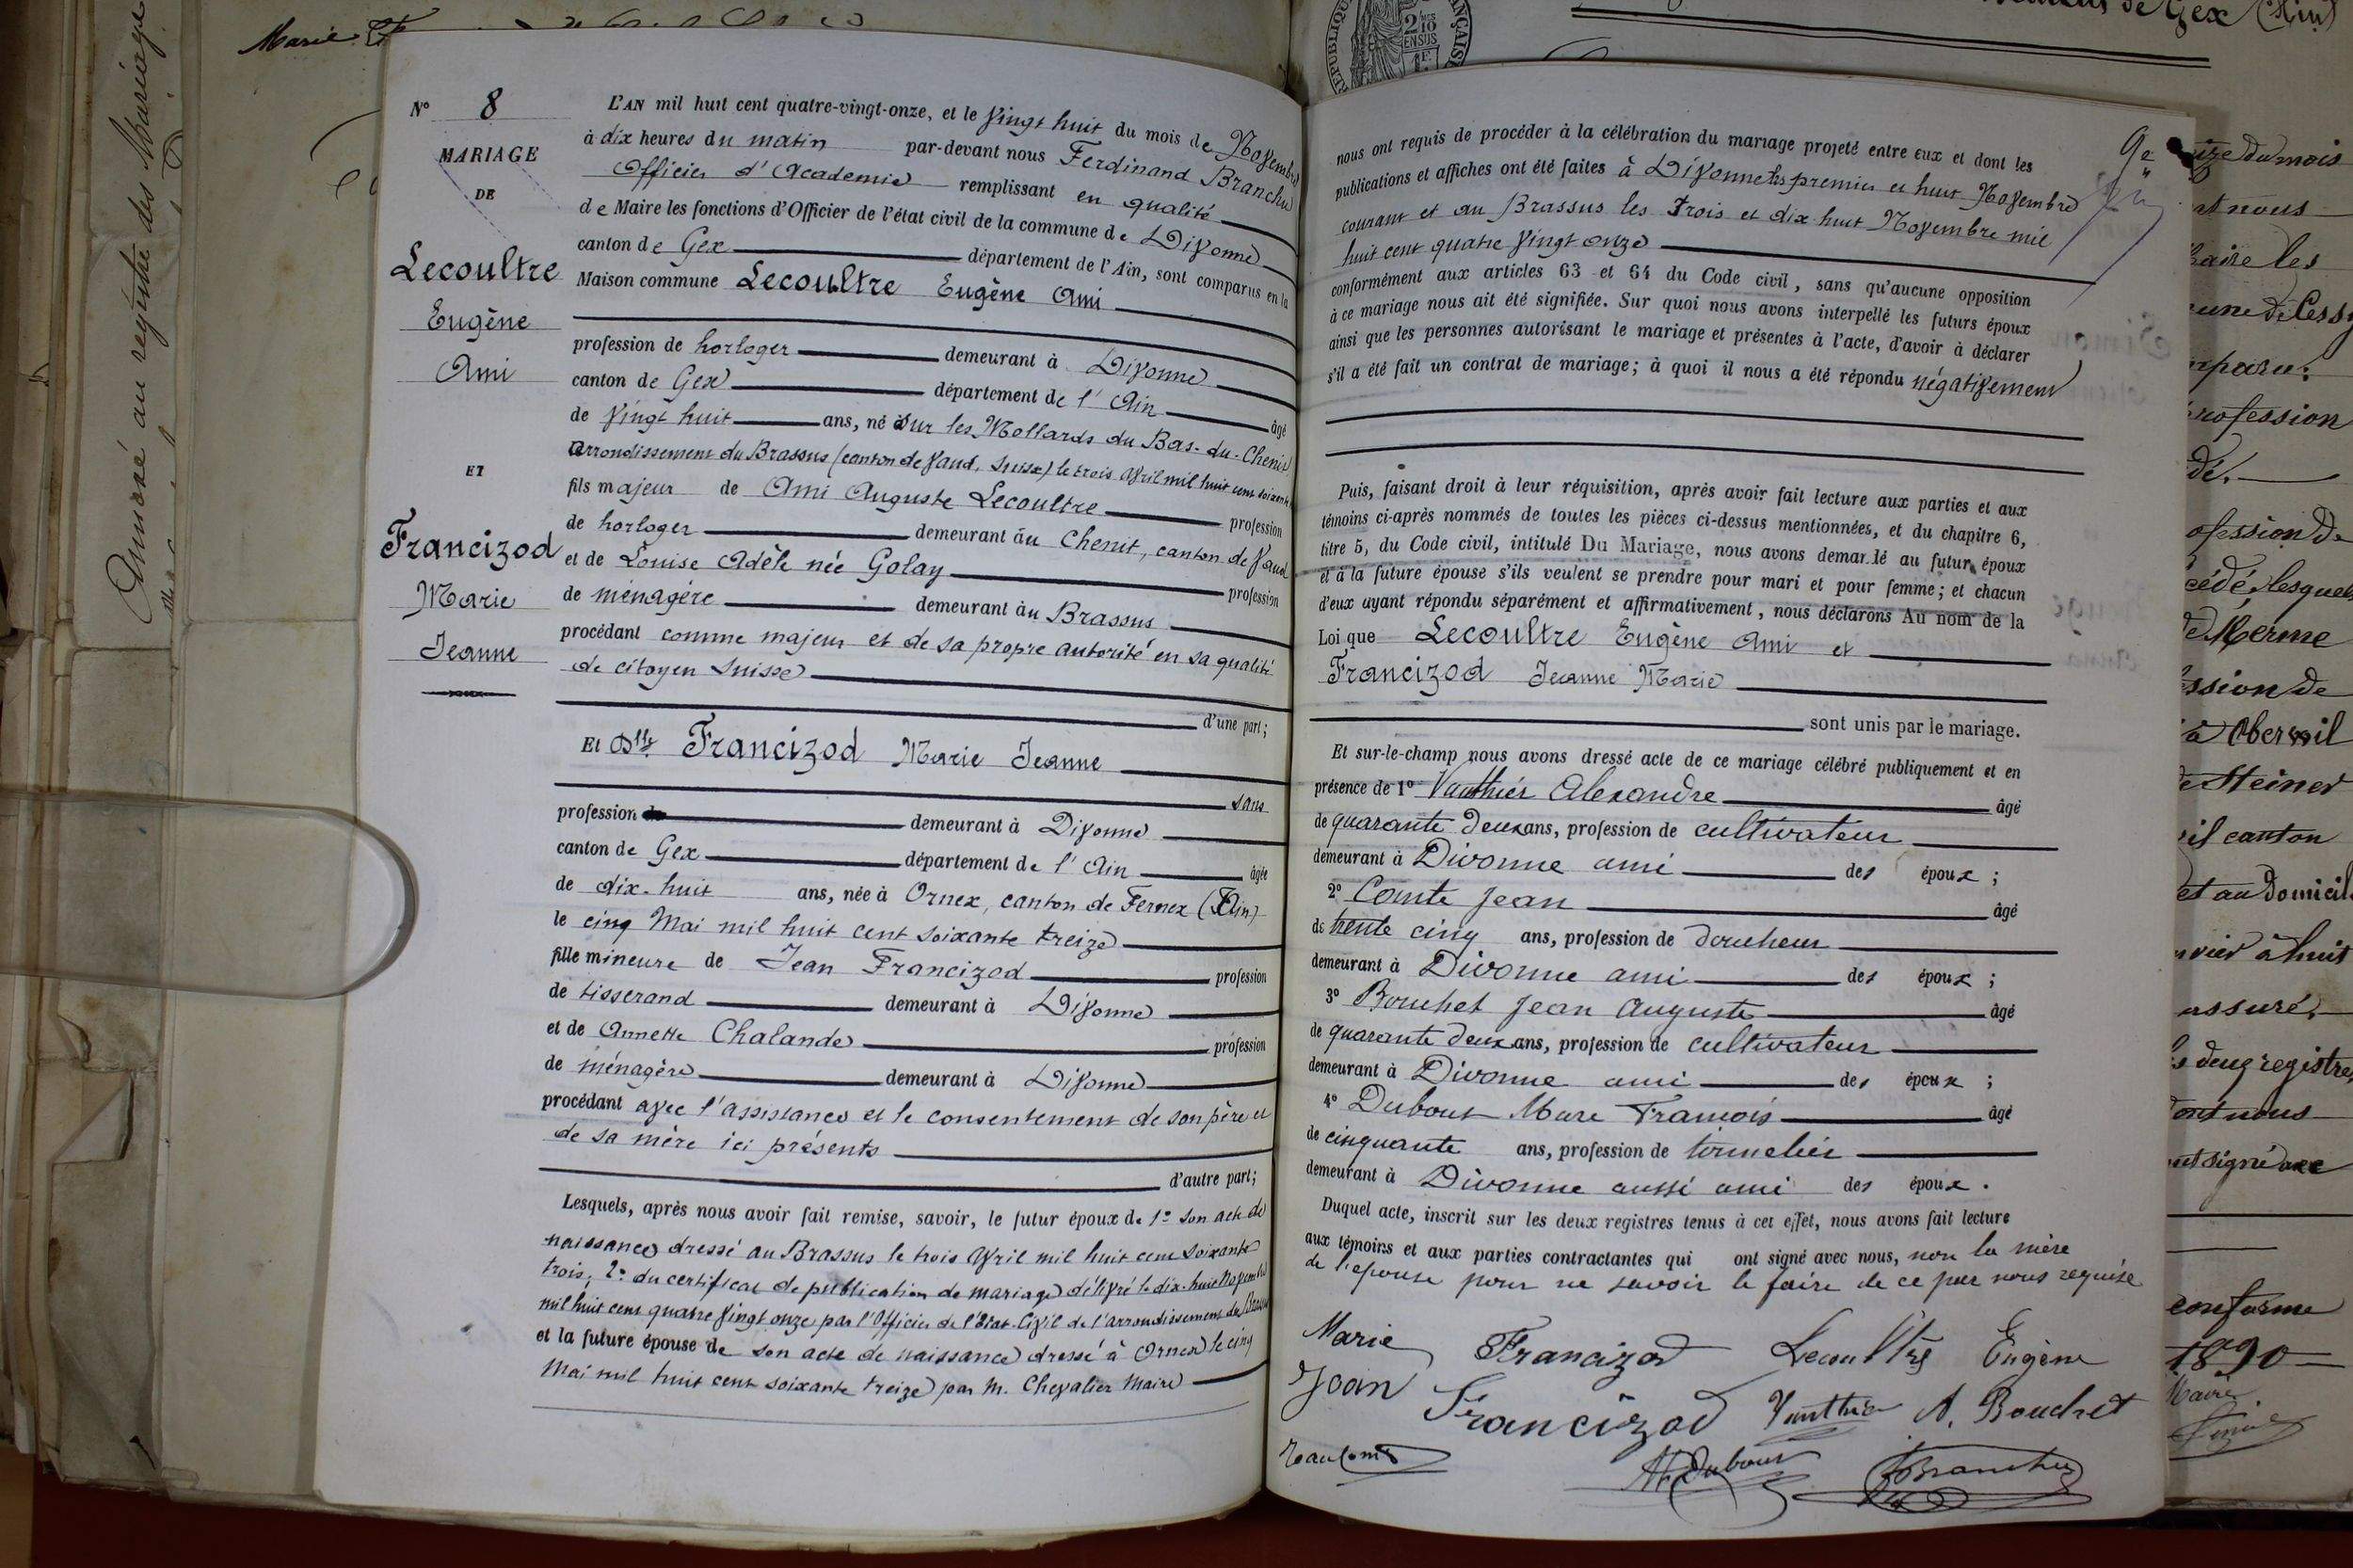 Marie
N° 8
MARIAGE
DE
Lecoultre
Eugène
Ami
ET
Francizod
Marie
Jeanne
L'AN mil huit cent quatre-vingt-onze, et le vingt huit du mois de Novembre
à dix heures du matin par-devant nous Ferdinand Branchu
Officier d'Academie remplissant en qualité
de Maire les fonctions d'Officier de l'état civil de la commune de Divonne
canton de Gex département de l'Ain, sont comparus en la
Maison commune Lecoultre Eugène Ami
profession de horloger demeurant à Divonne
canton de Gex département de l'Ain âgé
de vingt huit ans, né Sur les Mollards du Bas-du-Chenit
arrondissement du Brassus (canton de Vaud, Suisse) le trois Avril mil huit cent soixante
fils majeur de Ami Auguste Lecoultre profession
de horloger demeurant au Chenit, canton de Vaud
et de Louise Adèle née Golay profession
de ménagère demeurant àu Brassus
procédant comme majeur et de sa propre autorité en sa qualité
de citoyen Suisse
d'une part;
Et Dlle Francizod Marie Jeanne
sans
profession demeurant à Divonne
canton de Gex département de l'Ain âgée
de dix-huit ans, née à Ornex, canton de Fernex (Ain)
le cinq Mai mil huit cent soixante treize
fille mineure de Jean Francizod profession
de tisserand demeurant à Divonne
et de Annette Chalande profession
de ménagère demeurant à Divonne
procédant avec l'assistance et le consentement de son père et
de sa mère ici présents
d'autre part;
Lesquels, après nous avoir fait remise, savoir, le futur époux de 1° son acte de
naissance dressé au Brassus le trois Avril mil huit cent soixante
trois, 2° du certificat de publication de mariage délivré le dix-huit Novembre
mil huit cent quatre vingt onze par l'Officier de l'Etat-Civil de l'arrondissement du Brassus
et la future épouse de son acte de naissance dressé à Ornex le cinq
Mai mil huit cent soixante treize par M. Chevalier Maire
nous ont requis de procéder à la célébration du mariage projeté entre eux et dont les
publications et affiches ont été faites à Divonne les premier et huit Novembre
courant et au Brassus les trois et dix-huit Novembre mil
huit cent quatre vingt onze
conformément aux articles 63 et 64 du Code civil, sans qu'aucune opposition
à ce mariage nous ait été signifiée. Sur quoi nous avons interpellé les futurs époux
ainsi que les personnes autorisant le mariage et présentes à l'acte, d'avoir à déclarer
s'il a été fait un contrat de mariage; à quoi il nous a été répondu négativement
Puis, faisant droit à leur réquisition, après avoir fait lecture aux parties et aux
témoins ci-après nommés de toutes les pièces ci-dessus mentionnées, et du chapitre 6,
titre 5, du Code civil, intitulé Du Mariage, nous avons demandé au futur époux
et à la future épouse s'ils veulent se prendre pour mari et pour femme; et chacun
d'eux ayant répondu séparément et affirmativement, nous déclarons Au nom de la
Loi que Lecoultre Eugène Ami et
Francizod Jeanne Marie
sont unis par le mariage.
Et sur-le-champ nous avons dressé acte de ce mariage célébré publiquement et en
présence de 1° Vauthier Alexandre âgé
de quarante deux ans, profession de cultivateur
demeurant à Divonne ami des époux;
2° Comte Jean âgé
de trente cinq ans, profession de doucheur
demeurant à Divonne ami des époux;
3° Bouchet Jean Auguste âgé
de quarante deux ans, profession de cultivateur
demeurant à Divonne ami des époux;
4° Dubout Marc François âgé
de cinquante ans, profession de tonnelier
demeurant à Divonne aussi ami des époux.
Duquel acte, inscrit sur les deux registres tenus à cet effet, nous avons fait lecture
aux témoins et aux parties contractantes qui ont signé avec nous, non la mère
de l'épouse pour ne savoir le faire de ce par nous requise
Marie Francizod Lecoultre Eugène
Jean Francizod Vauthier A. Bouchet
Dubout Branchu
de Gex (Ain)
du mois
nous
Maire les
profession
Mérme
à Oberwil
de Steiner
canton
et au domicile
à huit
assuré.
deux registres
dont nous
signé avec
conforme
1890
Maire